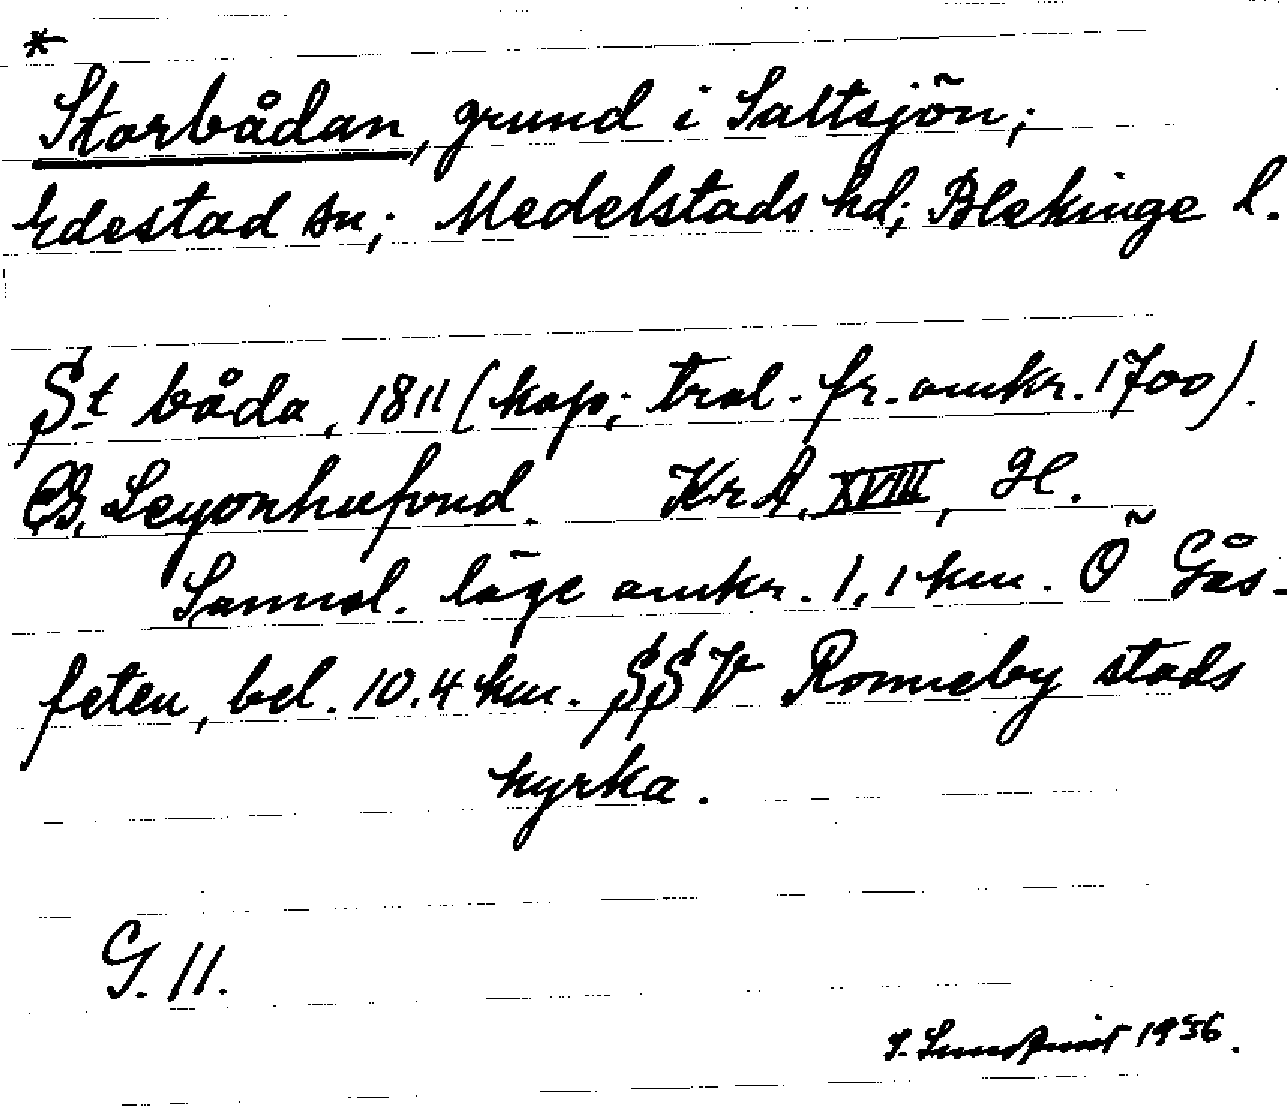 *
Storbådan, grund i Saltsjön;
Edestad sn; Medelstads hd; Blekinge l.
St båda, 1811 (kop; trol. fr. omkr. 1700).
CG. Leyonhufvud. KrA, XVIII, H.
Sannol. läge omkr. 1,1 km. Ö Gås-
feten, bel. 10.4 km. SSV Ronneby stads
kyrka.
G. 11.
1956.